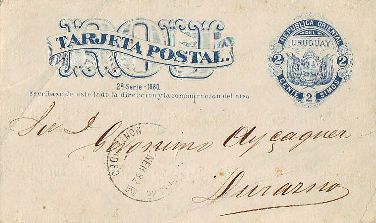 TARJETA POSTAL.
2ª Serie - 1880.
Escríbase de este lado la direccion y la comunicacion del otro
REPUBLICA ORIENTAL
DEL
URUGUAY
2 2
CENTE SIMOS
2
Sr. D. Geronimo Ayçaguer
MONTEVIDEO
Durazno